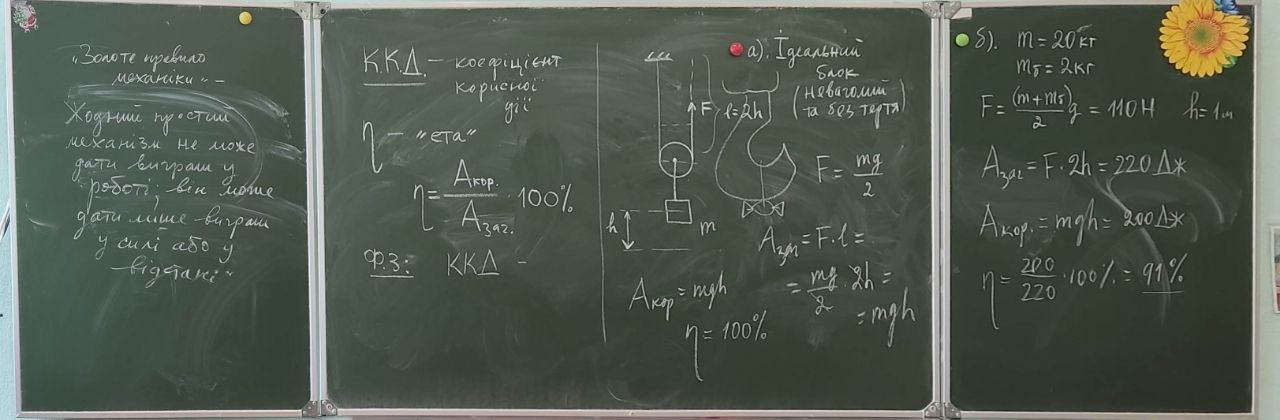 „Золоте правило
механіки" –
Жодний простий
механізм не може
дати виграш у
роботі; він може
дати лише виграш
у силі або у
відстані"
ККД. – коефіцієнт
корисної
дії
η – "ета"
η = Aкор. / Aзаг. · 100%
Ф.З: ККД –
а). Ідеальний
блок
(невагомий
та без тертя)
F
l=2h
F = mg/2
h
m
Aзаг = F·l =
= mg/2 · 2h =
= mgh
Aкор = mgh
η = 100%
б). m = 20 кг
mб = 2 кг
F = (m+mб)/2 g = 110 Н h = 1 м
Aзаг = F · 2h = 220 Дж
Aкор. = mgh = 200 Дж
η = 200/220 · 100% = 91%